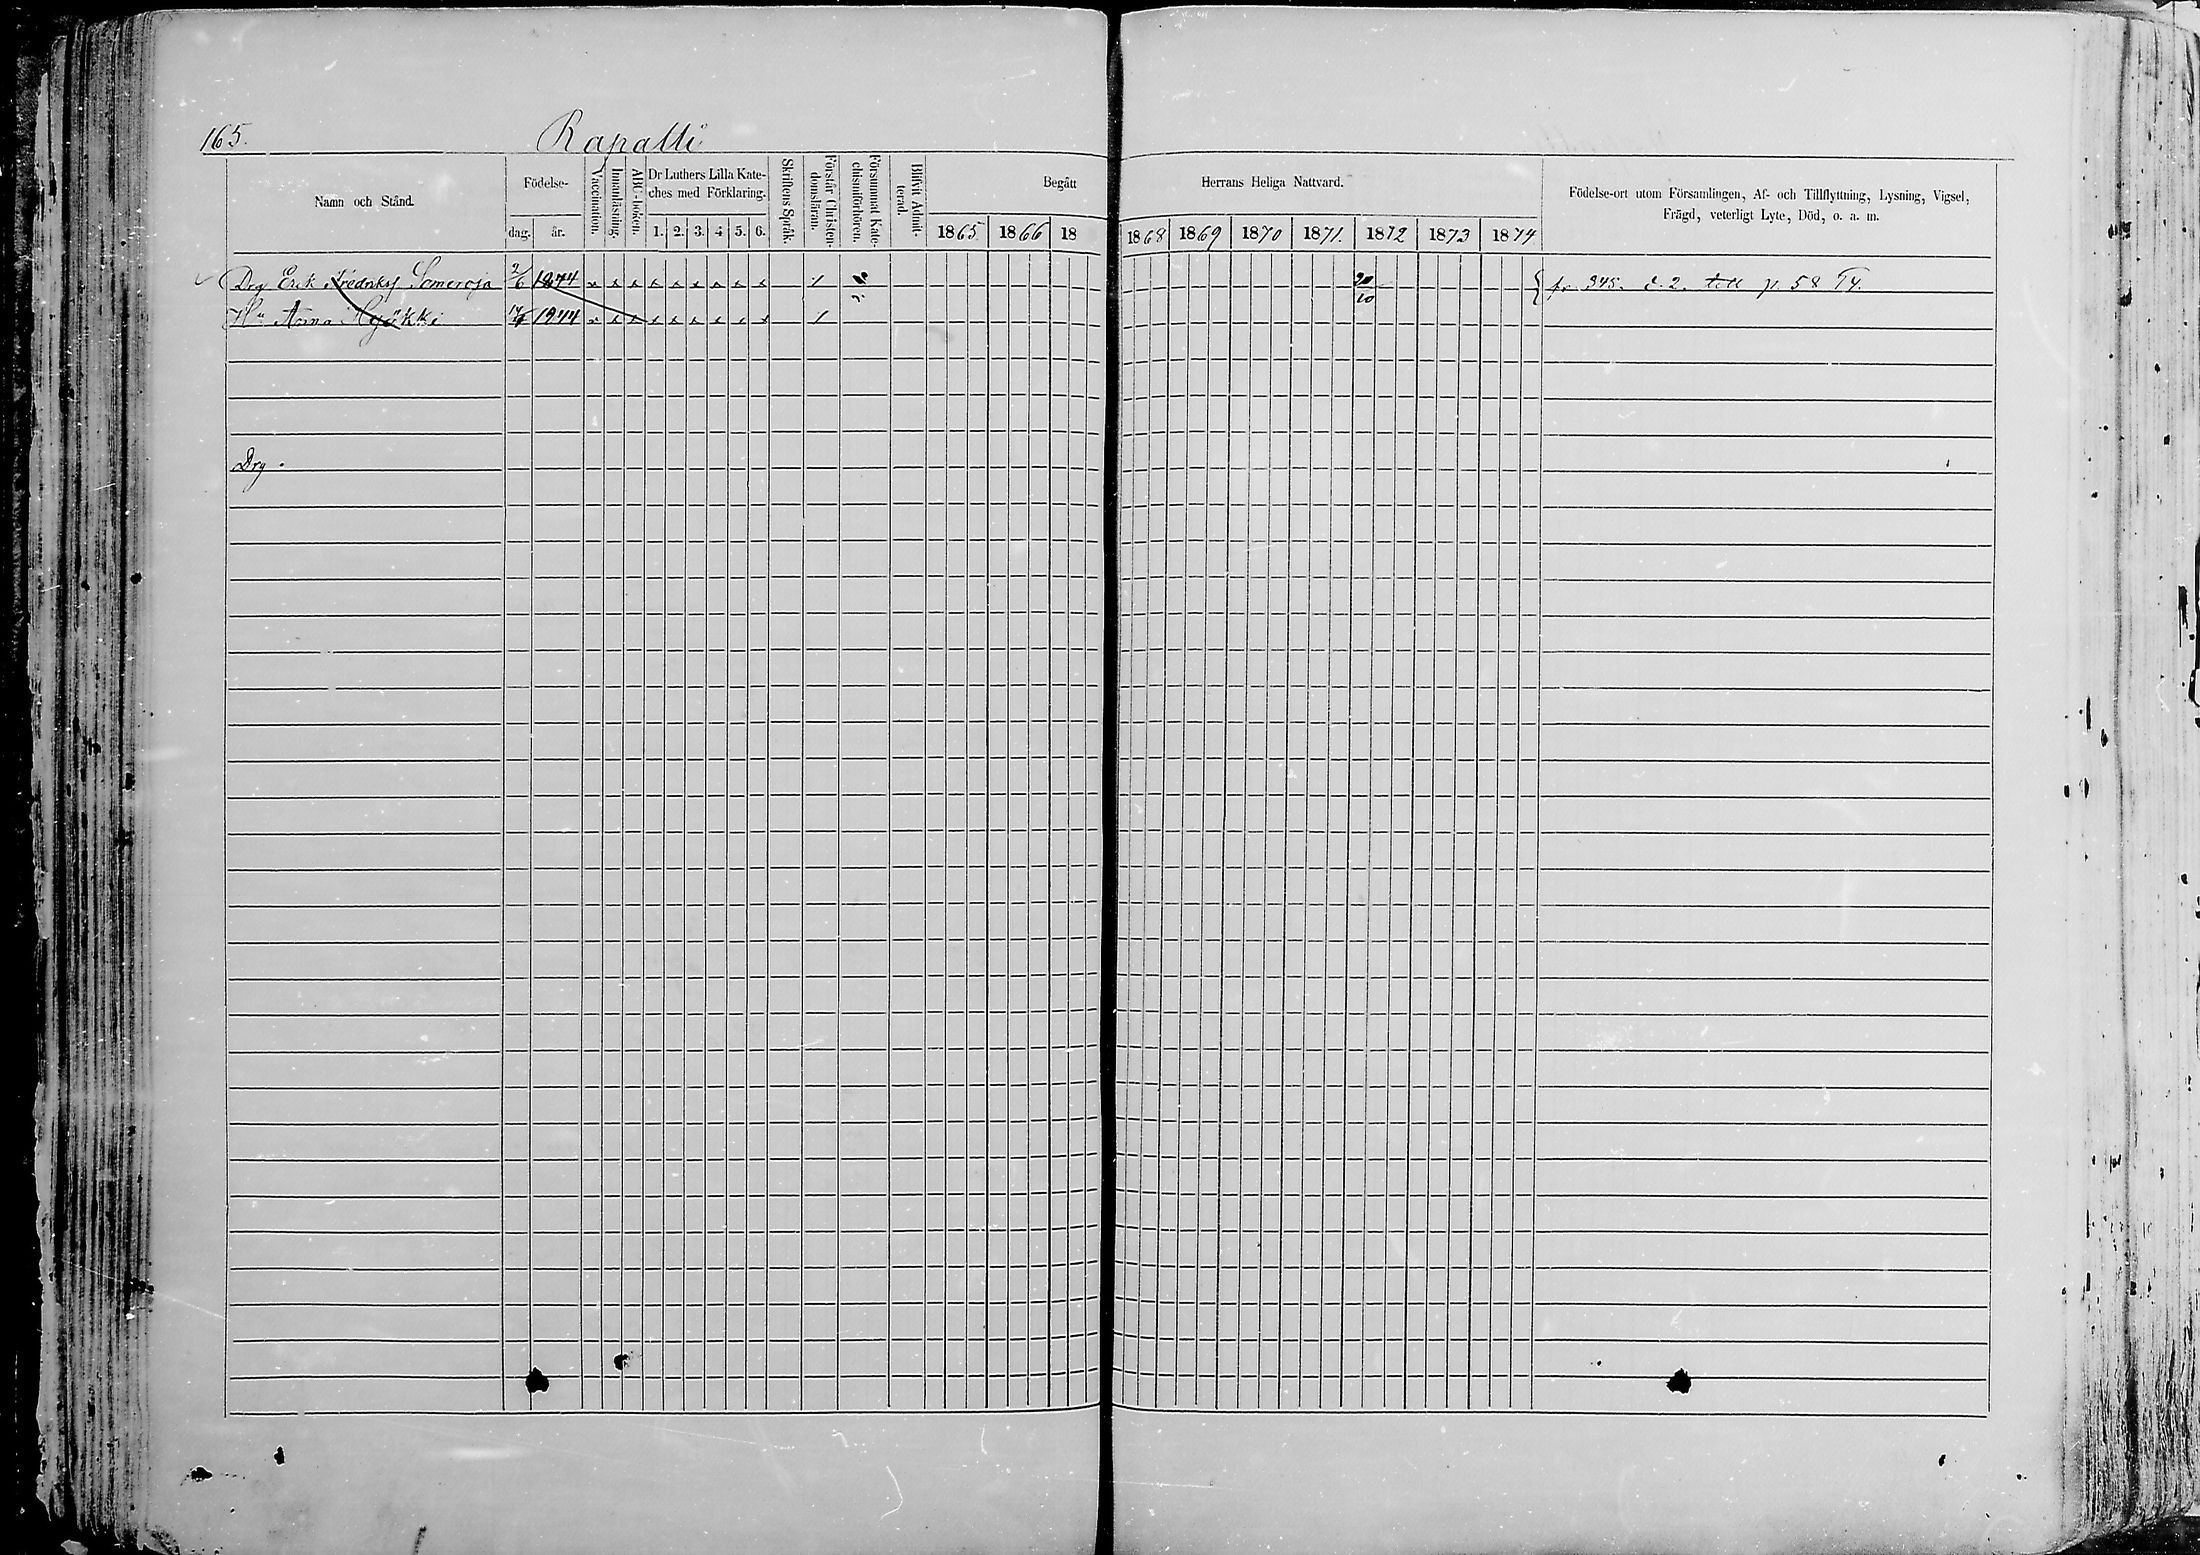 165.
Rapatti
Namn och Stånd.
Födelse-
dag. år.
Vaccination.
Innanläsning.
ABC-boken.
Dr Luthers Lilla Kate-
ches med Förklaring.
1. 2. 3. 4 5. 6.
Skriftens Språk.
Förstår Christen-
domsläran.
Försummat Kate-
chismiförhören.
Blifvit Admit-
terad.
Begått
1865 1866 18
Herrans Heliga Nattvard.
1868 1869 1870 1871. 1872 1873 1874
Födelse-ort utom Församlingen, Af- och Tillflyttning, Lysning, Vigsel,
Frägd, veterligt Lyte, Död, o. a. m.
Drg Erik Fredrikss Someroja 2/6 1844 x x x x x x x x x 20/10 fr. 345. d. 2. till p. 58 T4.
Hu Anna 1944 x x x x x x x x x
Drg.